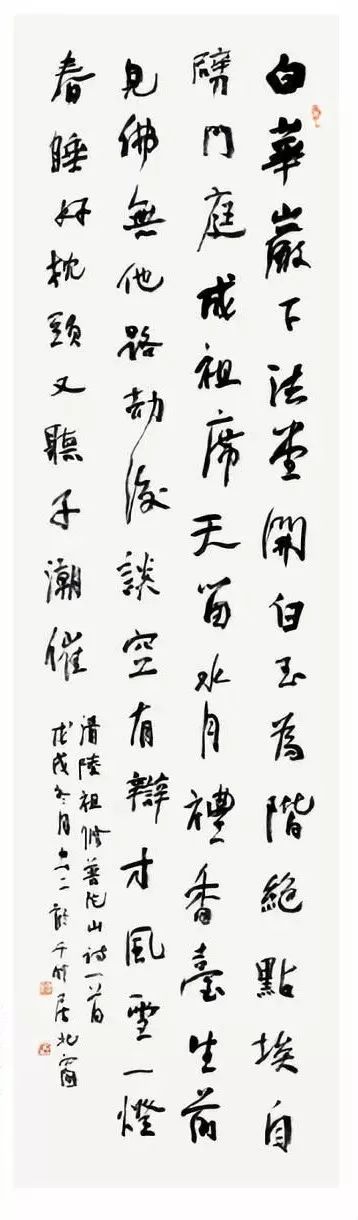 白華巖下法堂開白玉為階絕點埃自
劈門庭成祖席天留水月禮香臺生前
見佛無他路劫後談空有辯才風雪一燈
春睡好枕頭又聽子潮催
清陸祖修普陀山詩一首
戊戌冬月二於千竹居北窗